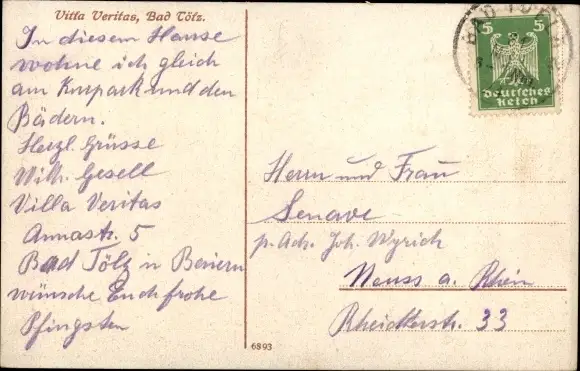 Villa Veritas, Bad Tölz.
In diesem Hause
wohne ich gleich
am Kurpark und den
Bädern.
Herzl. Grüsse
Wilh. Gesell
Villa Veritas
Annastr. 5
Bad Tölz in Beiern
wünsche Euch frohe
Pfingsten
6893
BAD TÖLZ
5 5
Deutsches
Reich
Herrn und Frau
Senave
p. Adr. Joh. Wyrich
Neuss a. Rhein
Rheidterstr. 33